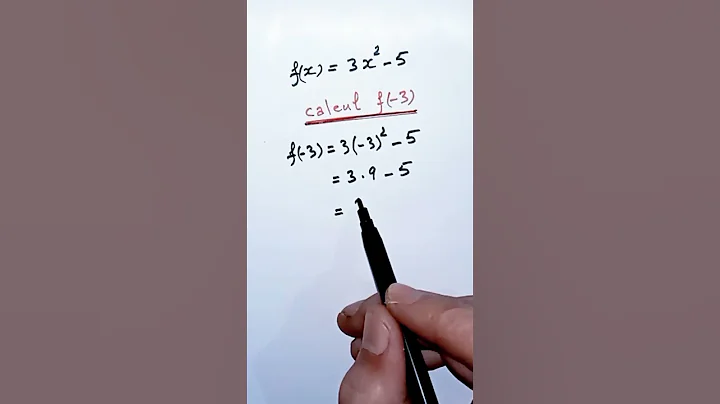 f(x) = 3x² - 5
calcul f(-3)
f(-3) = 3(-3)² - 5
= 3 . 9 - 5
=